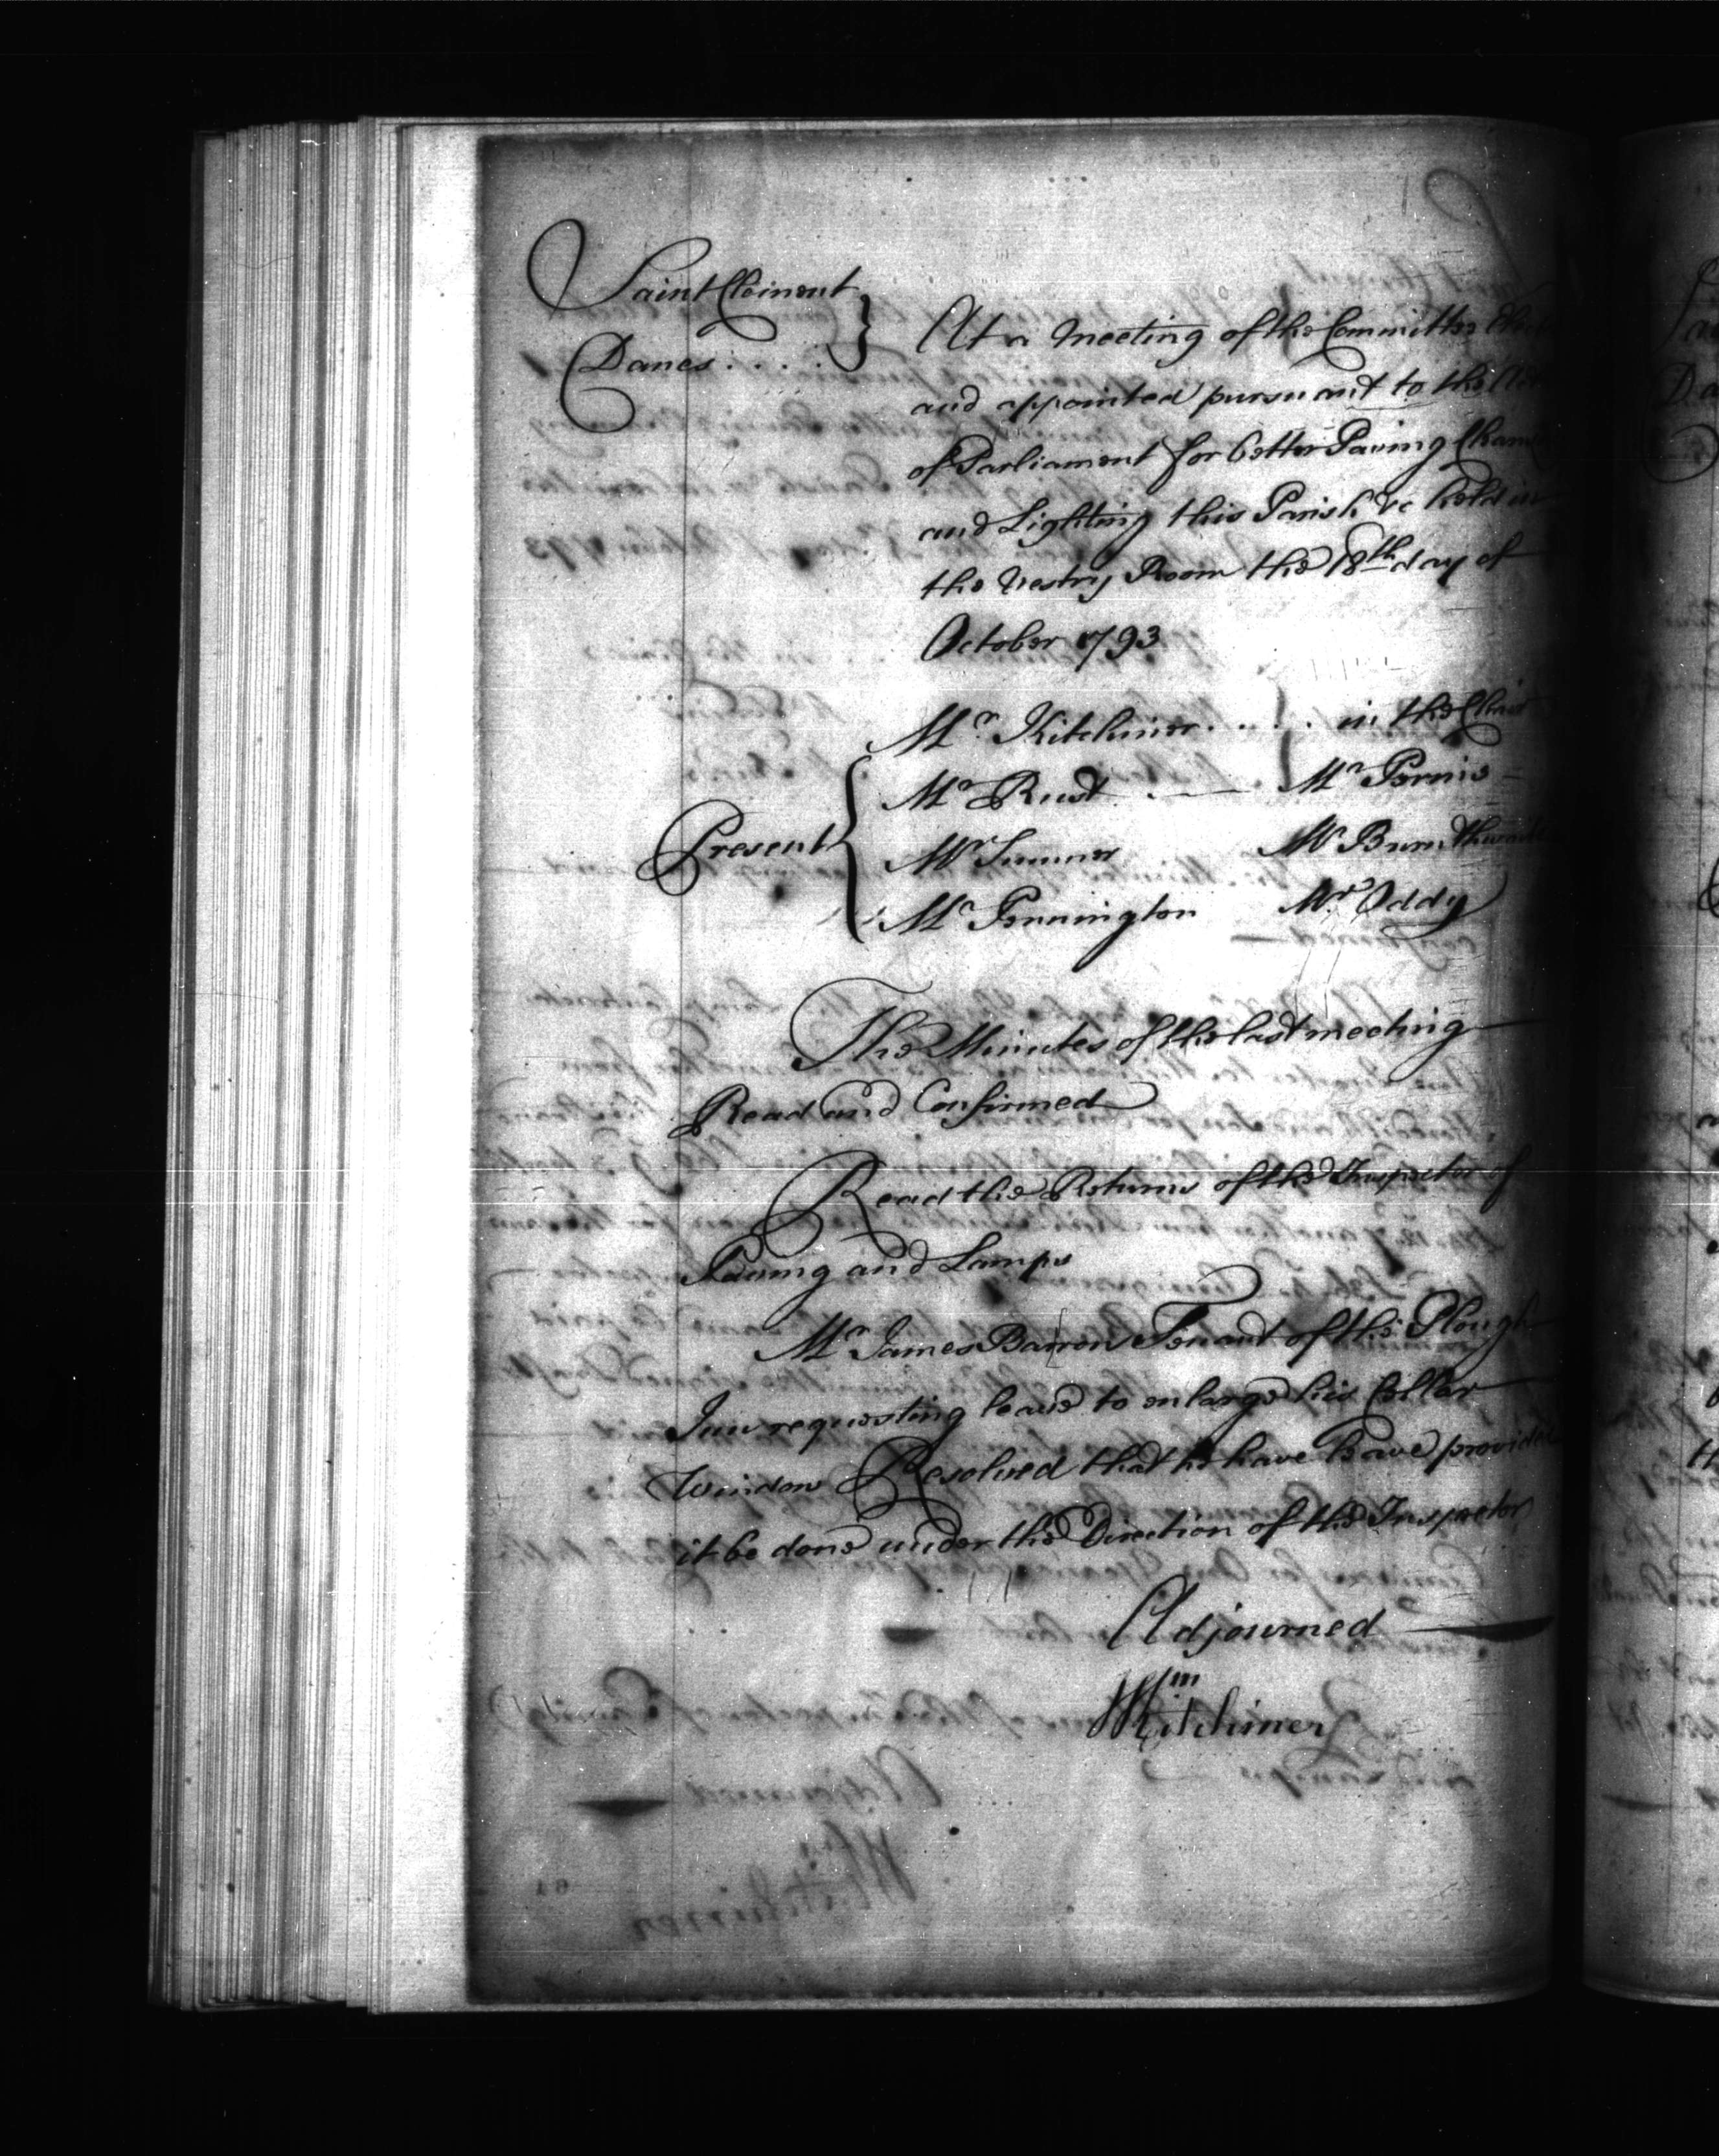 Saint Clement
Danes . . . . }
At a Meeting of the Committee
and appointed pursuant to the Act
of Parliament for better Paving
and Lighting this Parish &c held in
the Vestry Room the 18th day of
October 1793
Mr Kitchiner . . . . . in the Chair
Mr Rust Mr Perris
Present { Mr Sumner Mr
Mr Pennington Mr Oddy
The Minutes of the last meeting
Read and Confirmed
Read the Returns of the Inspector of
Paving and Lamps
Mr James Barron Tenant of the Plough
Inn requesting leave to enlarge his Cellar
Window Resolved that he have leave provided
it be done under the Direction of the Inspector
Adjourned
Wm
Kitchiner